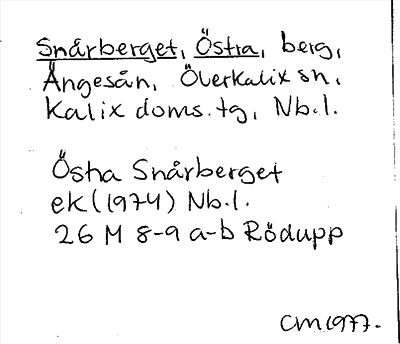 Snårberget, Östra, berg,
Ängesån, Överkalix sn.
Kalix doms. tg, Nb.l.
Östra Snårberget
ek (1974) Nb.l.
26 M 8-9 a-b Rödupp
CM 1977.